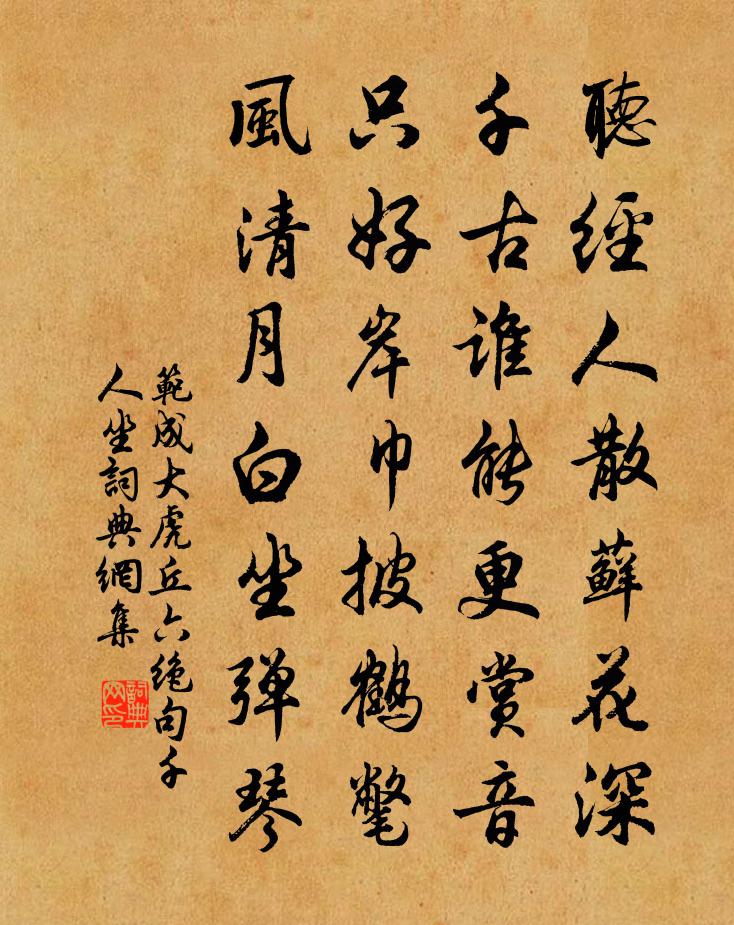 聽經人散蘚花深
千古誰能更賞音
只好岸巾披鶴氅
風清月白坐彈琴
範成大虎丘六绝句千
人坐詞典網集
詞典网印